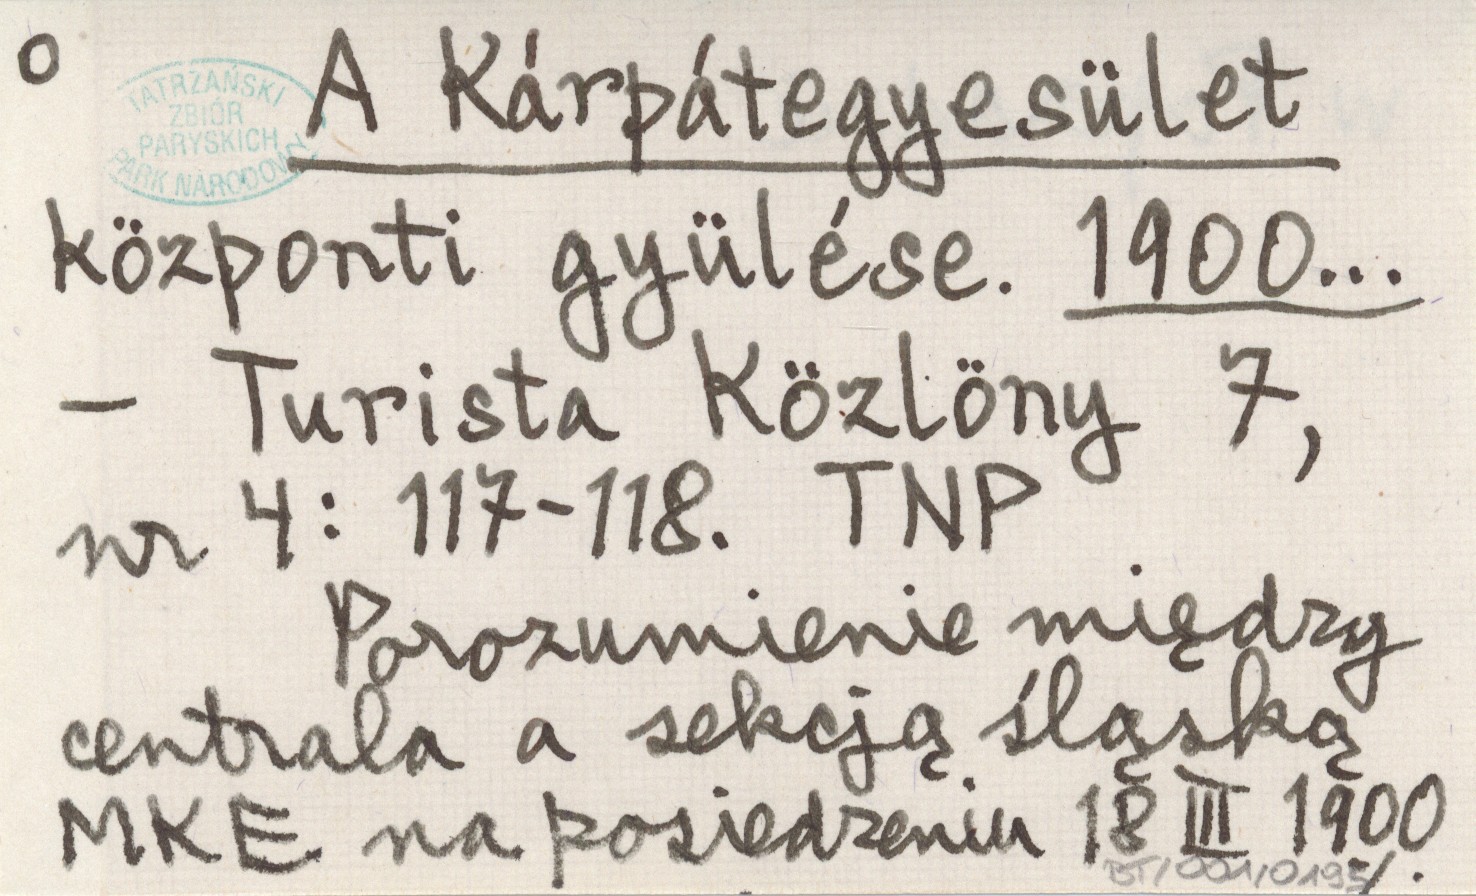 o A Kárpátegyesület
TATRZAŃSKI
ZBIÓR
PARYSKICH
PARK NARODOWY
központi gyülése. 1900...
– Turista Közlöny 7,
nr 4: 117-118. TNP
Porozumienie między
centrala a sekcją śląską
MKE na posiedzeniu 18 III 1900
BT/001/0195/.